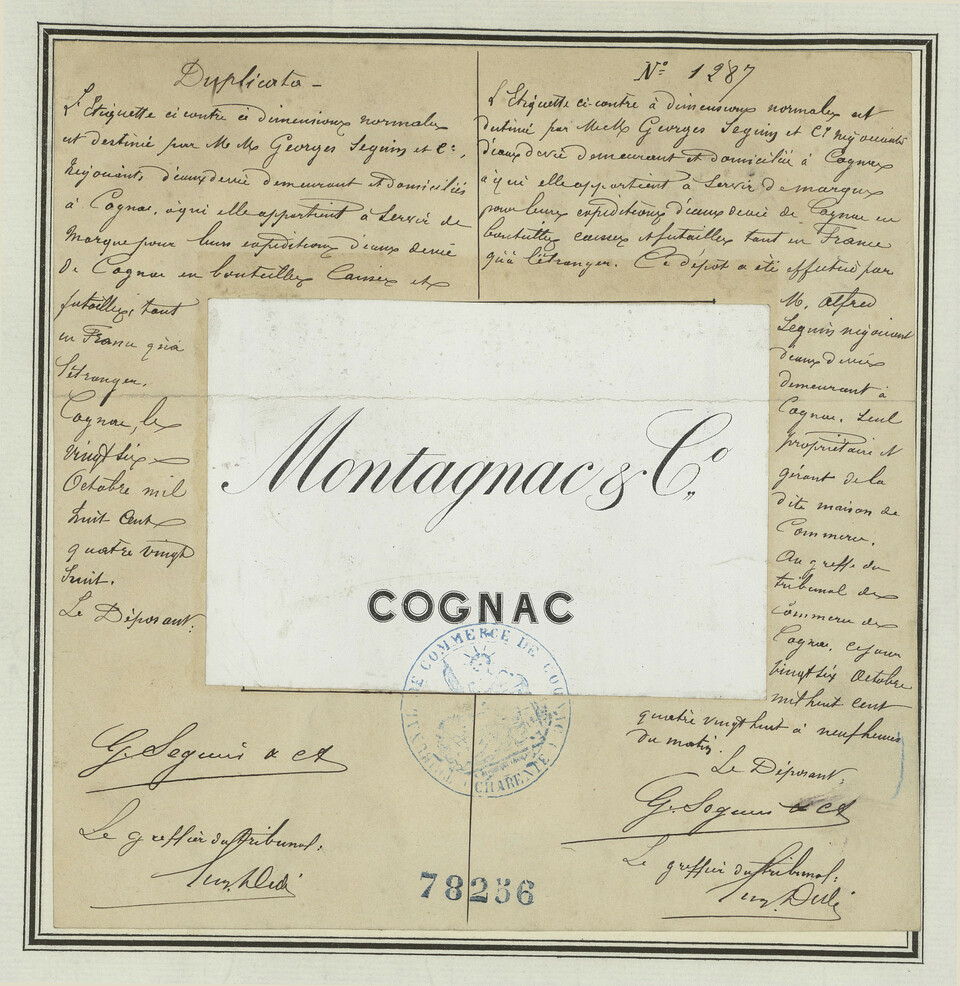 Duplicata -
L'Etiquette ci contre à dimensions normales
est destinée par M M Georges Seguin et Cie,
Négociants d'eaux de vie demeurant et domiciliés
à Cognac, à qui elle appartient à Servir de
Marque pour leurs expéditions d'eaux de vie
de Cognac en bouteilles Caisses et
futailles, tant
en France qu'à
l'étranger.
Cognac, le
vingt six
Octobre mil
huit cent
quatre vingt
huit.
Le Déposant:
G. Seguin & Ce
Le greffier du tribunal:
No 1287
L'Etiquette ci-contre à dimensions normales est
destinée par MM Georges Seguin et Cie négociants
d'eaux de vie demeurant et domiciliés à Cognac
à qui elle appartient à Servir de marque
pour leurs expéditions d'eaux de vie de Cognac en
bouteilles caisses et futailles tant en France
qu'à l'étranger. Ce dépôt a été effectué par
M. Alfred
Seguin négociant
d'eaux de vie
demeurant à
Cognac, Seul
propriétaire et
gérant de la
dite maison de
Commerce.
Au greffe du
tribunal de
Commerce de
Cognac, ce jour
vingt six Octobre
mil huit cent
quatre vingt huit à neuf heures
du matin.
Le Déposant:
G. Seguin & Ce
Le greffier du tribunal:
Montagnac & Co.
COGNAC
TRIBUNAL DE COMMERCE DE COGNAC
CHARENTE
78256